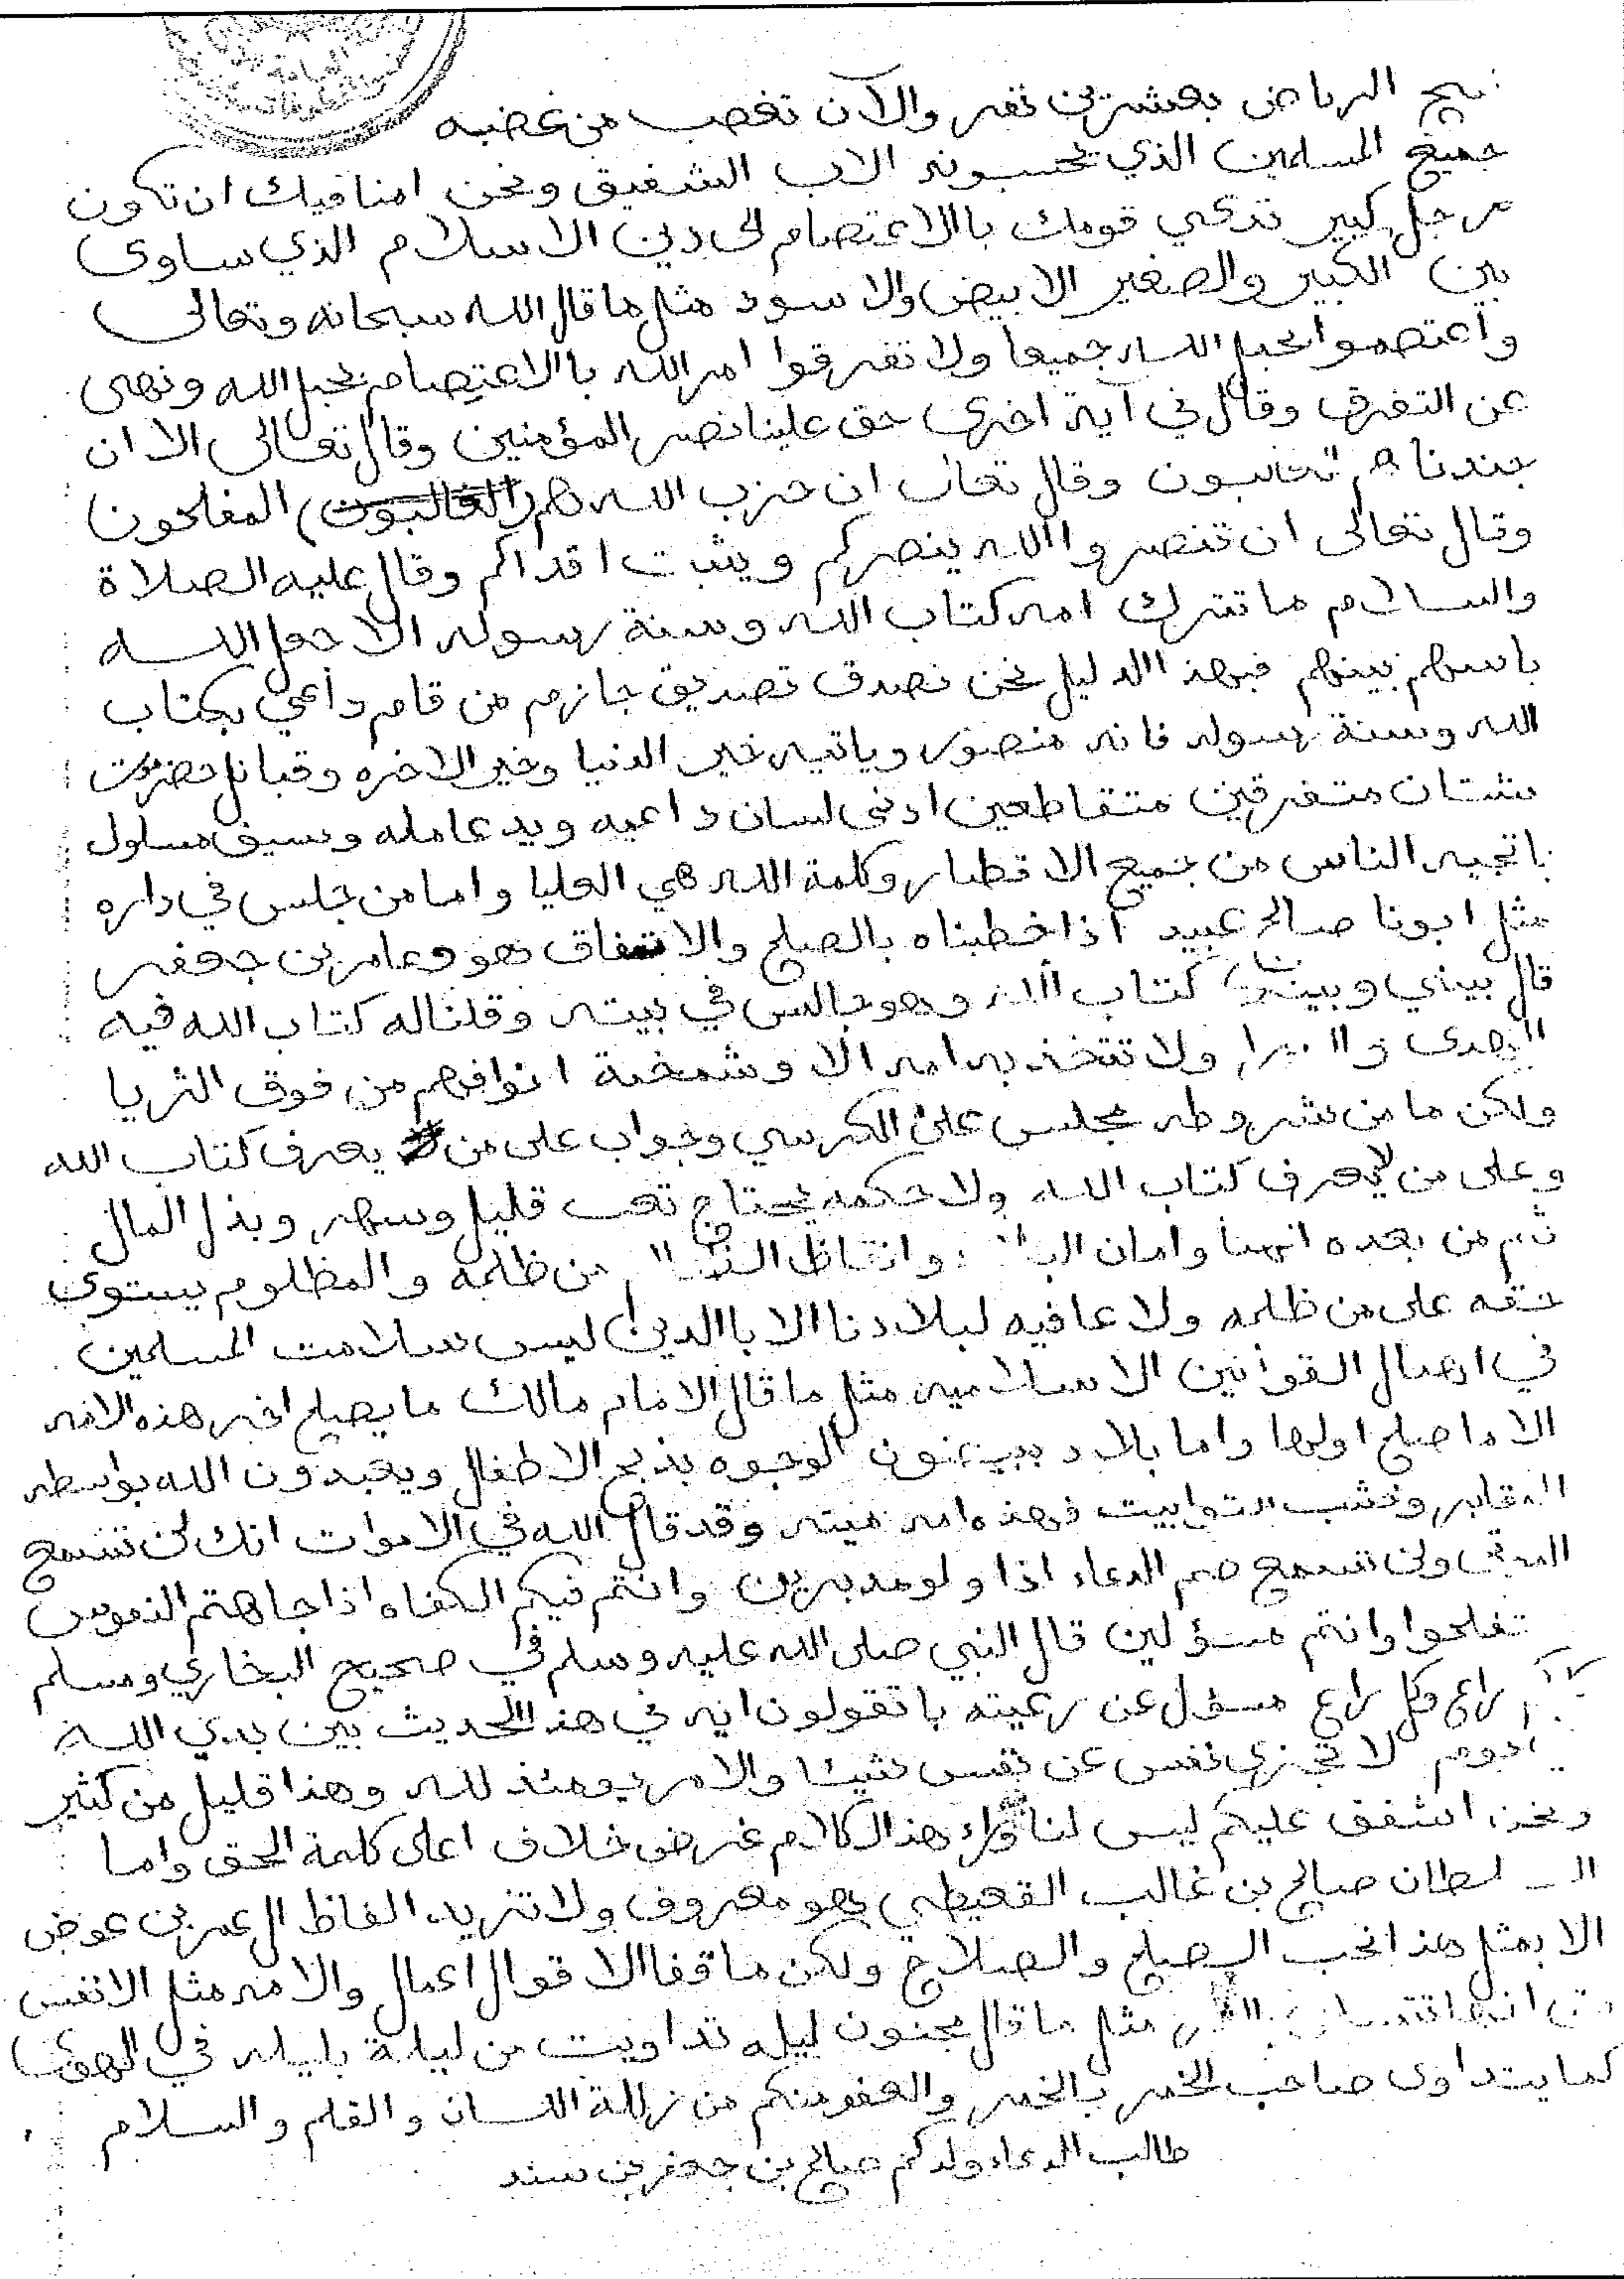 الرياض بعشرين نفر والآن تغصب من غضبه
جميع المسلمين الذي تحسبونه الاب الشفيق ونحن امنا فيك ان تكون
رجل كبير تدعي قومك باالاعتصام الى دين الاسلام الذي ساوى
بين الكبير والصغير الابيض والاسود مثل ما قال الله سبحانه وتعالى
وأعتصموا بحبل الله جميعا ولا تفرقوا امر الله باالاعتصام بحبل الله ونهى
عن التفرق وقال في آية اخرى حق علينا نصر المؤمنين وقال تعالى الا ان
جندنا هم الغالبون وقال تعالى ان حزب الله هم (الغالبون) المفلحون
وقال تعالى ان تنصروا الله ينصركم ويثبت اقداكم وقال عليه الصلاة
والسلام ما تترك امه كتاب الله وسنة رسوله الا جعل الله
باسهم بينهم فبهذا الدليل نحن نصدق تصديق جازم من قام داعي بكتاب
الله وسنة رسوله فانه منصور وياتيه خير الدنيا وخير الاخره وقبائل حضرموت
شتان متفرقين متقاطعين ادنى لسان داعيه ويد عامله وسيف مسلول
باتجيه الناس من جميع الاقطار وكلمة الله هي العليا واما من جلس في داره
مثل ابونا صالح عبيد اذا خطبناه بالصلح والاتفاق هو وعامر بن جعفر
قال بيني وبينك كتاب الله وهو جالس في بيته وقلنا له كتاب الله فيه
الهدى ولا تتخذ به امه الا وشمخة انوافهم من فوق الثريا
ولكن ما من شروطه مجلس على الكرسي وجواب على من يعرف كتاب الله
وعلى من لا يعرف كتاب الله ولا حكمه يحتاج تعب قليل وسهر وبذل المال
ثم من بعده الهنا وامان من ظلمه والمظلوم يستوي
حقه على من ظلمه ولا عافيه لبلادنا الا باالدين ليس سلامت المسلمين
في اهمال القوانين الاسلاميه مثل ما قال الامام مالك ما يصلح اخر هذه الامه
الا ما صلح اولها واما بلاد الوجوه بذبح الاطفال ويعبدون الله بواسطه
المقابر وخشب التوابيت فهذه امه ميته وقد قال الله في الاموات انك لن تسمع
الموتى ولن تسمع صم الدعاء اذا ولو مدبرين وانتم فيكم الكفاه اذا جاهتم النفوس
تفلحوا وانتم مسؤلين قال النبي صلى الله عليه وسلم في صحيح البخاري ومسلم
راع وكل راع مسؤل عن رعيته با تقولون ايه في هذا الحديث بين يدي الله
يوم لا تجزي نفس عن نفس شيئا والامر يومئذ لله وهذا قليل من كثير
ونحن اشفق عليكم ليس لنا وراء هذا الكلام غرض خلاف اعلى كلمة الحق واما
السلطان صالح بن غالب القعيطي فهو معروف ولا تزيد الفاظ ال عمر بن عوض
الا بمثل هذا نحب الصلح والصلاح ولكن ما قفا الاقوال اعمال والامه مثل الانفس
مثل ما قال مجنون ليله تداويت من ليلة بليله في الهوى
كما يتداوى صاحب الخمر بالخمر والعفو منكم من زللة اللسان والقلم والسلام
طالب الدعاء ولدكم صالح بن جعفر بن سند